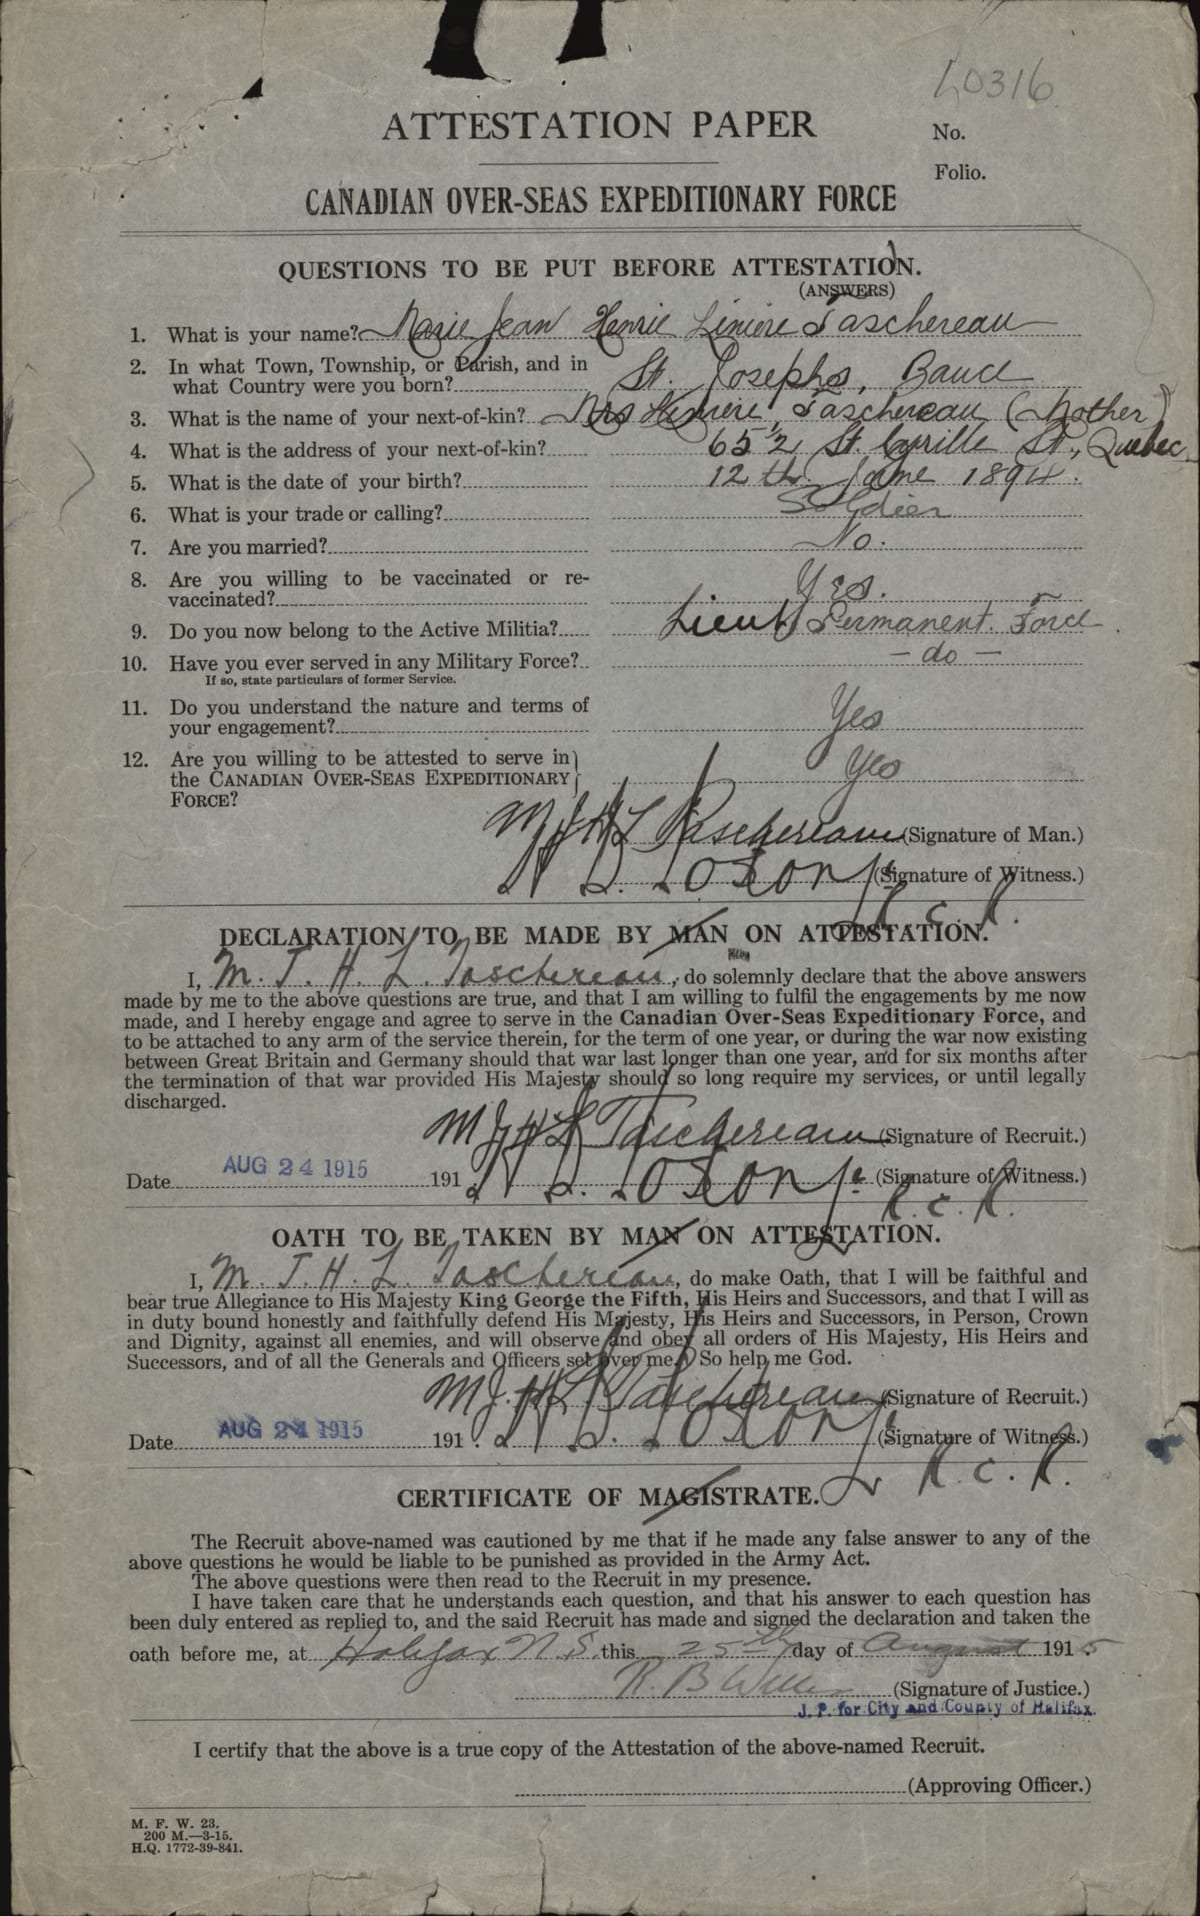 L0316
ATTESTATION PAPER
No.
Folio.
CANADIAN OVER-SEAS EXPEDITIONARY FORCE
QUESTIONS TO BE PUT BEFORE ATTESTATION.
(ANSWERS)
1. What is your name? Marie Jean Henrie Liniere Taschereau
2. In what Town, Township, or Parish, and in
what Country were you born? St. Josephs, Bauce
3. What is the name of your next-of-kin? Mrs Liniere Taschereau (Mother)
4. What is the address of your next-of-kin? 65½ St. Cyrille St., Quebec
5. What is the date of your birth? 12th. June 1894.
6. What is your trade or calling? Soldier
7. Are you married? No.
8. Are you willing to be vaccinated or re-
vaccinated? Yes.
9. Do you now belong to the Active Militia? Lieut Permanent. Force
10. Have you ever served in any Military Force? - do -
If so, state particulars of former Service.
11. Do you understand the nature and terms of
your engagement? Yes
12. Are you willing to be attested to serve in
the CANADIAN OVER-SEAS EXPEDITIONARY Yes
FORCE?
M J H L Taschereau (Signature of Man.)
(Signature of Witness.)
R. C. R.
DECLARATION TO BE MADE BY MAN ON ATTESTATION.
I, M. J. H. L. Taschereau, do solemnly declare that the above answers
made by me to the above questions are true, and that I am willing to fulfil the engagements by me now
made, and I hereby engage and agree to serve in the Canadian Over-Seas Expeditionary Force, and
to be attached to any arm of the service therein, for the term of one year, or during the war now existing
between Great Britain and Germany should that war last longer than one year, and for six months after
the termination of that war provided His Majesty should so long require my services, or until legally
discharged.
M J H L Taschereau (Signature of Recruit.)
Date AUG 24 1915 191 (Signature of Witness.)
R. C. R.
OATH TO BE TAKEN BY MAN ON ATTESTATION.
I, M. J. H. L. Taschereau, do make Oath, that I will be faithful and
bear true Allegiance to His Majesty King George the Fifth, His Heirs and Successors, and that I will as
in duty bound honestly and faithfully defend His Majesty, His Heirs and Successors, in Person, Crown
and Dignity, against all enemies, and will observe and obey all orders of His Majesty, His Heirs and
Successors, and of all the Generals and Officers set over me. So help me God.
M J. H L Taschereau (Signature of Recruit.)
Date AUG 24 1915 191 . (Signature of Witness.)
R. C. R.
CERTIFICATE OF MAGISTRATE.
The Recruit above-named was cautioned by me that if he made any false answer to any of the
above questions he would be liable to be punished as provided in the Army Act.
The above questions were then read to the Recruit in my presence.
I have taken care that he understands each question, and that his answer to each question has
been duly entered as replied to, and the said Recruit has made and signed the declaration and taken the
oath before me, at Halifax N.S. this 25th day of August 1915.
R. B (Signature of Justice.)
J. P. for City and County of Halifax.
I certify that the above is a true copy of the Attestation of the above-named Recruit.
(Approving Officer.)
M. F. W. 23.
200 M.—3-15.
H.Q. 1772-39-841.